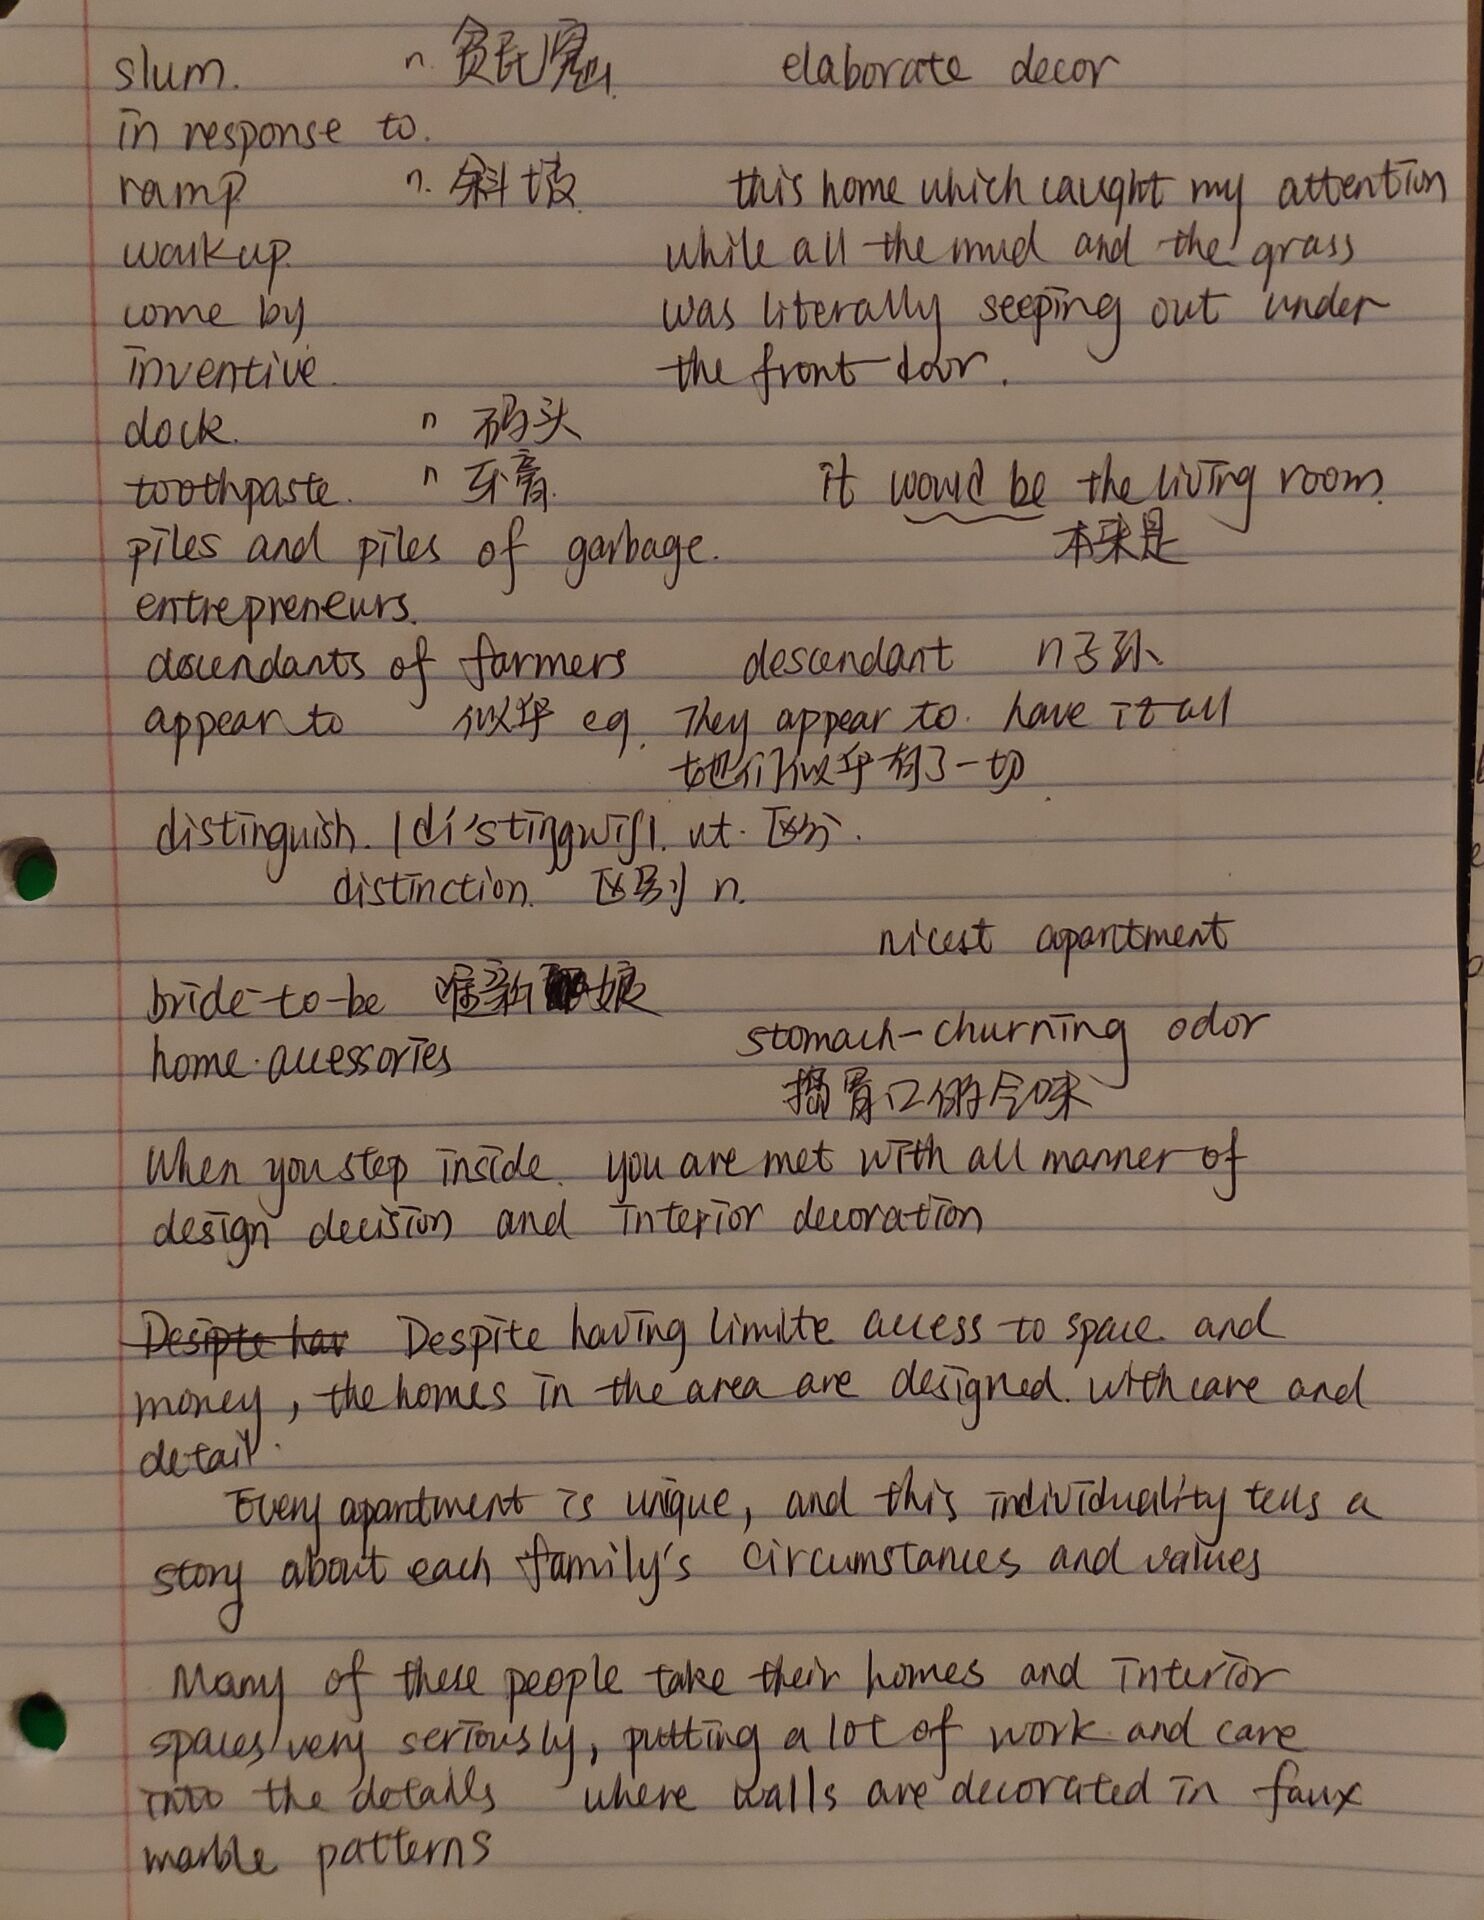 slum. n. 贫民窟. elaborate decor
in response to.
ramp n. 斜坡 this home which caught my attention
walkup. while all the mud and the grass
come by was literally seeping out under
inventive. the front door.
dock. n 码头
toothpaste. n 牙膏. it would be the living room.
piles and piles of garbage. 本来是
entrepreneurs.
descendants of farmers descendant n 子孙
appear to 似乎 eg. They appear to have it all
他们似乎有了一切
distinguish. /di'stiŋgwiʃ/. vt. 区分.
distinction. 区别 n.
nicest apartment
bride-to-be 准新娘
home accessories stomach-churning odor
捣胃口的气味
When you step inside. you are met with all manner of
design decision and interior decoration
Desipte hav Despite having limite access to space and
money, the homes in the area are designed with care and
detail.
Every apartment is unique, and this individuality tells a
story about each family's circumstances and values
Many of these people take their homes and interior
spaces very seriously, putting a lot of work and care
into the details where walls are decorated in faux
marble patterns